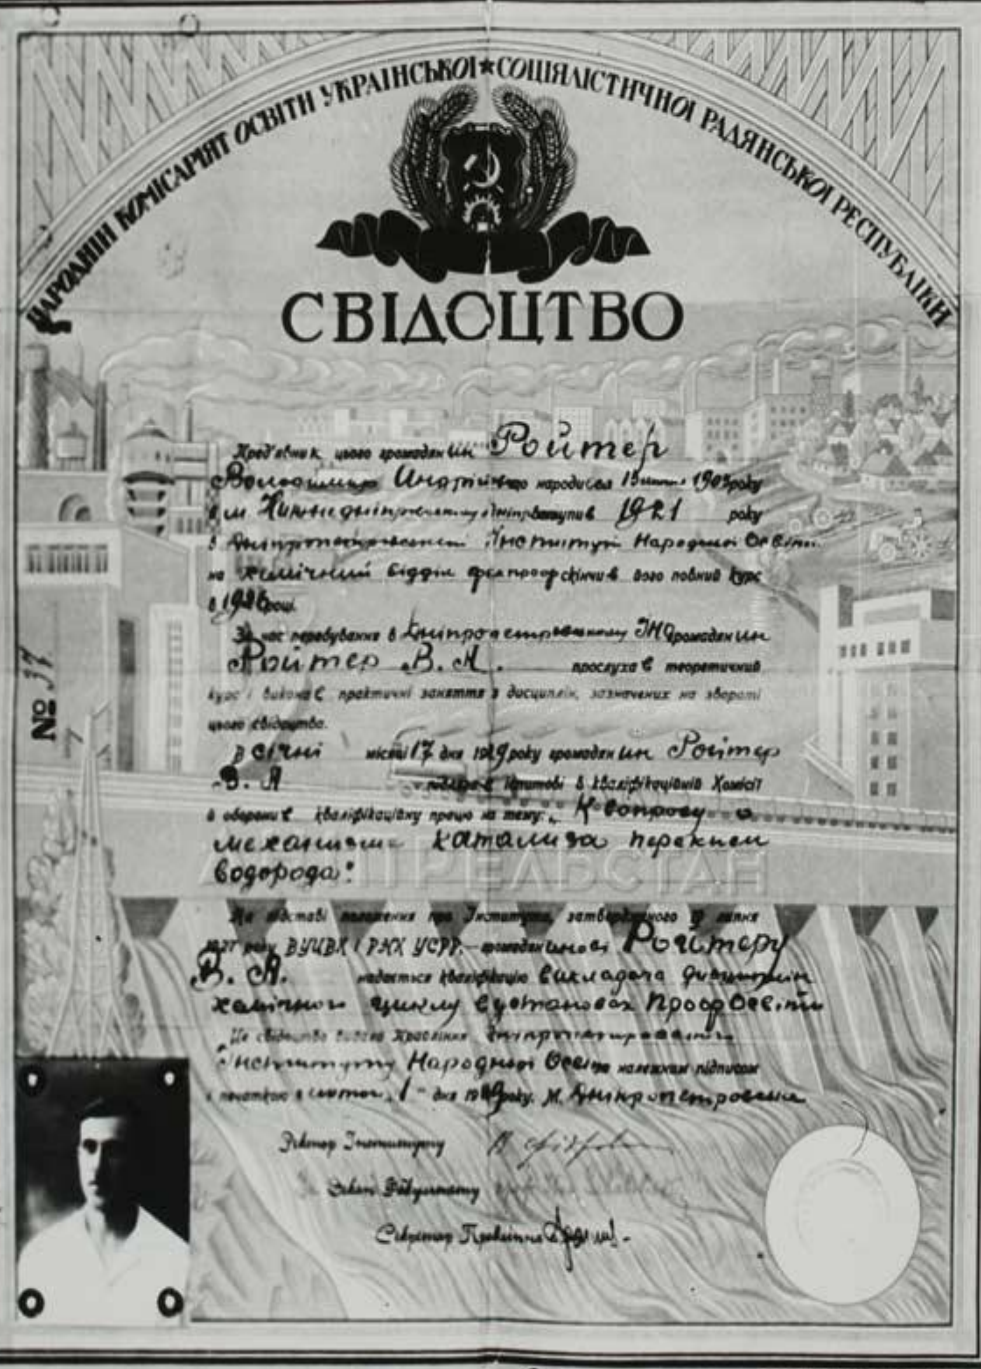 НАРОДНІЙ КОМІСАРІЯТ ОСВІТИ УКРАЇНСЬКОЇ ★ СОЦІЯЛІСТИЧНОЇ РАДЯНСЬКОЇ РЕСПУБЛІКИ
СВІДОЦТВО
Пред'явник цього громадянин Ройтер
Володимир народився 1903 року
в м. вступив 1921 року
в Дніпропетровський Інститут Народної Освіти
на хемічний відділ скінчив його повний курс
в 1926 році.
За час перебування в Дніпропетровському ІНО громадянин
Ройтер В. А. прослухав теоретичний
курс і виконав практичні заняття з дисциплін, зазначених на звороті
цього свідоцтва.
В січні місяці 17 дня 1929 року громадянин Ройтер
В. А. в Кваліфікаційній Комісії
й оборонив кваліфікаційну працю на тему: „К вопросу о
механизме катализа перекиси
водорода"
На підставі положення про Інститути, затвердженого липня
року ВУЦВК і РНК УСРР. громадянинові Ройтеру
В. А. надається кваліфікацію викладача дисциплін
хемічного циклу в установах Профосвіти
Це свідоцтво видано Правління Дніпропетровського
Інституту Народної Освіти належним підписом
і печаткою 1 дня 1929 року. М. Дніпропетровське
Ректор Інституту
Декан Факультету
Секретар Правління
№ 37